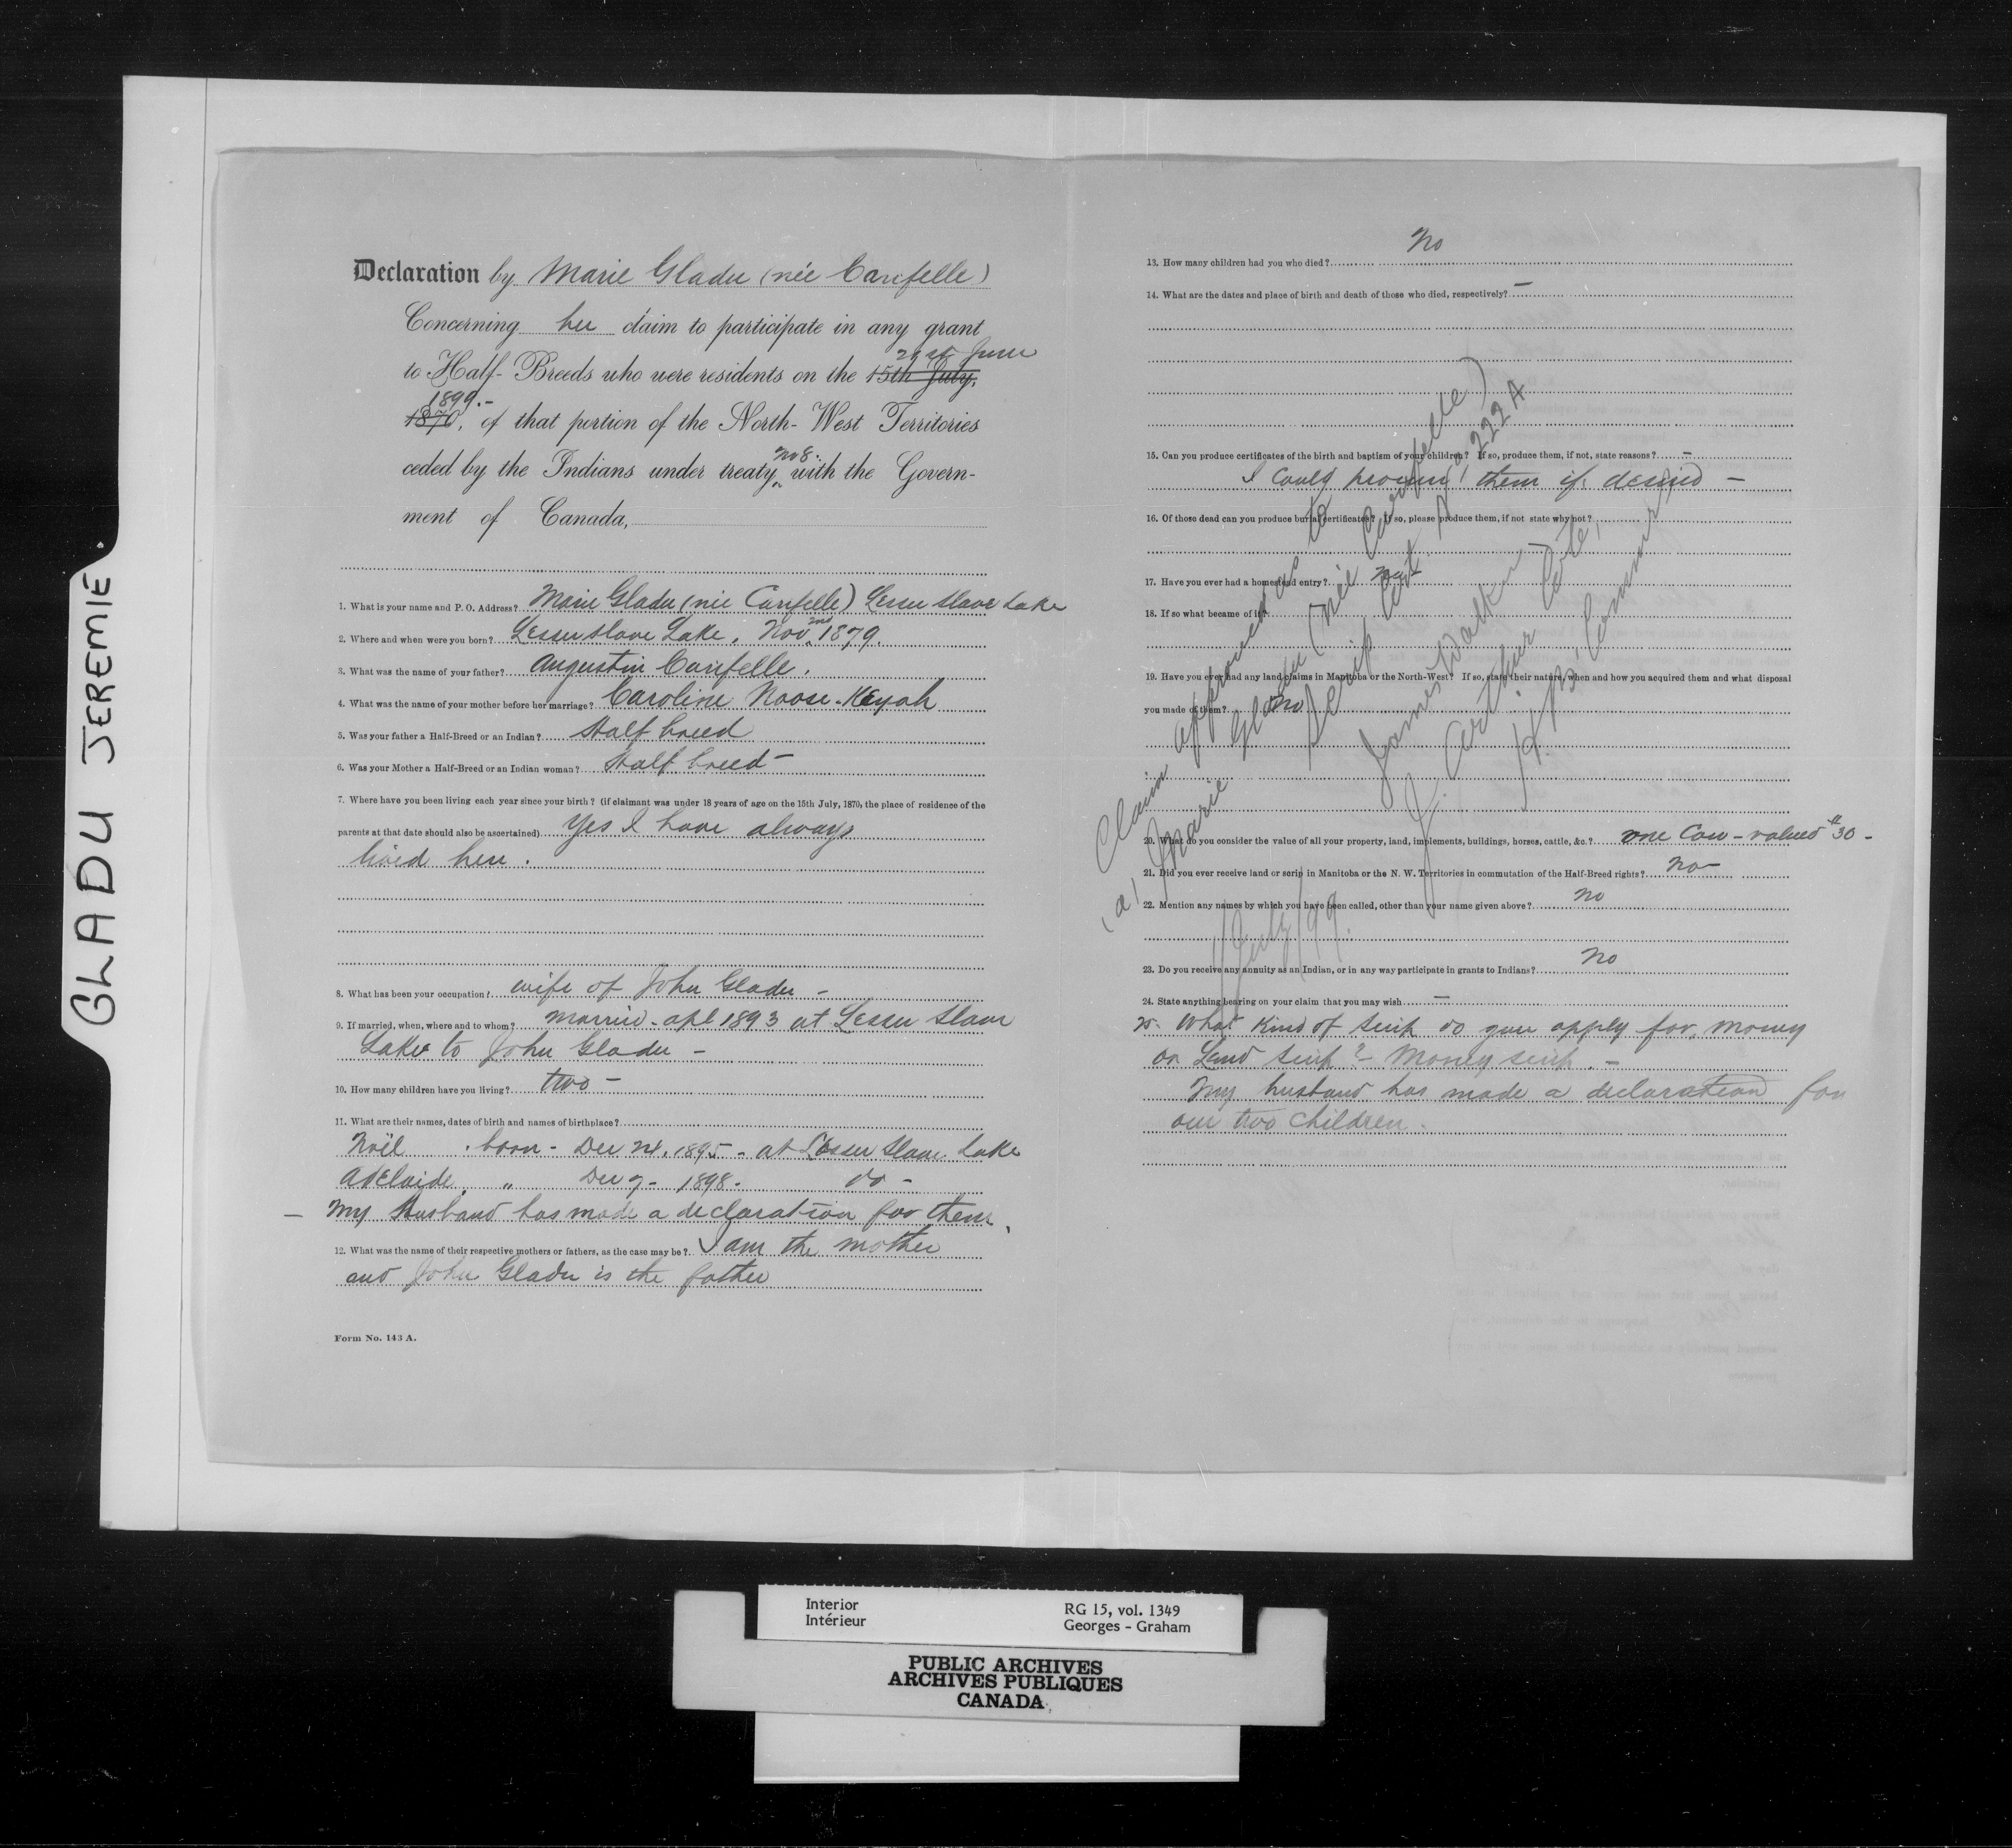 GLADU JEREMIE
Declaration by Marie Gladu (née Carifelle)
Concerning her claim to participate in any grant
21st June
to Half-Breeds who were residents on the 15th July,
1899.-
1870, of that portion of the North-West Territories
No 8.
ceded by the Indians under treaty with the Govern-
ment of Canada,
1. What is your name and P. O. Address? Marie Gladu (née Carifelle) Lesser Slave Lake
2. Where and when were you born? Lesser Slave Lake. Nov. 2nd 1879.
3. What was the name of your father? Augustin Carifelle.
4. What was the name of your mother before her marriage? Caroline Noose-Keyah
5. Was your father a Half-Breed or an Indian? Half breed
6. Was your Mother a Half-Breed or an Indian woman? Half breed -
7. Where have you been living each year since your birth? (if claimant was under 18 years of age on the 15th July, 1870, the place of residence of the
parents at that date should also be ascertained) Yes I have always
lived here.
8. What has been your occupation? wife of John Gladu -
9. If married, when, where and to whom? Married - Apl 1893 at Lesser Slave
Lake to John Gladu -
10. How many children have you living? two -
11. What are their names, dates of birth and names of birthplace?
Noël . born - Dec 24. 1895 - at Lesser Slave Lake
Adelaide. " Dec 7 - 1898 - do -
- My Husband has made a declaration for them.
12. What was the name of their respective mothers or fathers, as the case may be? I am the mother
and John Gladu is the father
Form No. 143 A.
No
13. How many children had you who died?
14. What are the dates and place of birth and death of those who died, respectively? -
15. Can you produce certificates of the birth and baptism of your children? If so, produce them, if not, state reasons? -
I could procure them if desired -
16. Of those dead can you produce burial certificates? If so, please produce them, if not state why not?
17. Have you ever had a homestead entry? No -
18. If so what became of it?
19. Have you ever had any land claims in Manitoba or the North-West? If so, state their nature, when and how you acquired them and what disposal
you made of them? No
20. What do you consider the value of all your property, land, implements, buildings, horses, cattle, &c.? one Cow - valued $30 -
21. Did you ever receive land or scrip in Manitoba or the N. W. Territories in commutation of the Half-Breed rights? No -
22. Mention any names by which you have been called, other than your name given above? No
23. Do you receive any annuity as an Indian, or in any way participate in grants to Indians? No
24. State anything bearing on your claim that you may wish -
25. What kind of scrip do you apply for, money
or Land scrip? - Money scrip. -
My husband has made a declaration for
our two children.
Claim approved as to
(a) Marie Gladu (née Carifelle)
Scrip Cert. No 222 A
James Walker
J. Arthur Coté,
H. B. Commrs
July/99.
Interior
Intérieur
RG 15, vol. 1349
Georges - Graham
PUBLIC ARCHIVES
ARCHIVES PUBLIQUES
CANADA